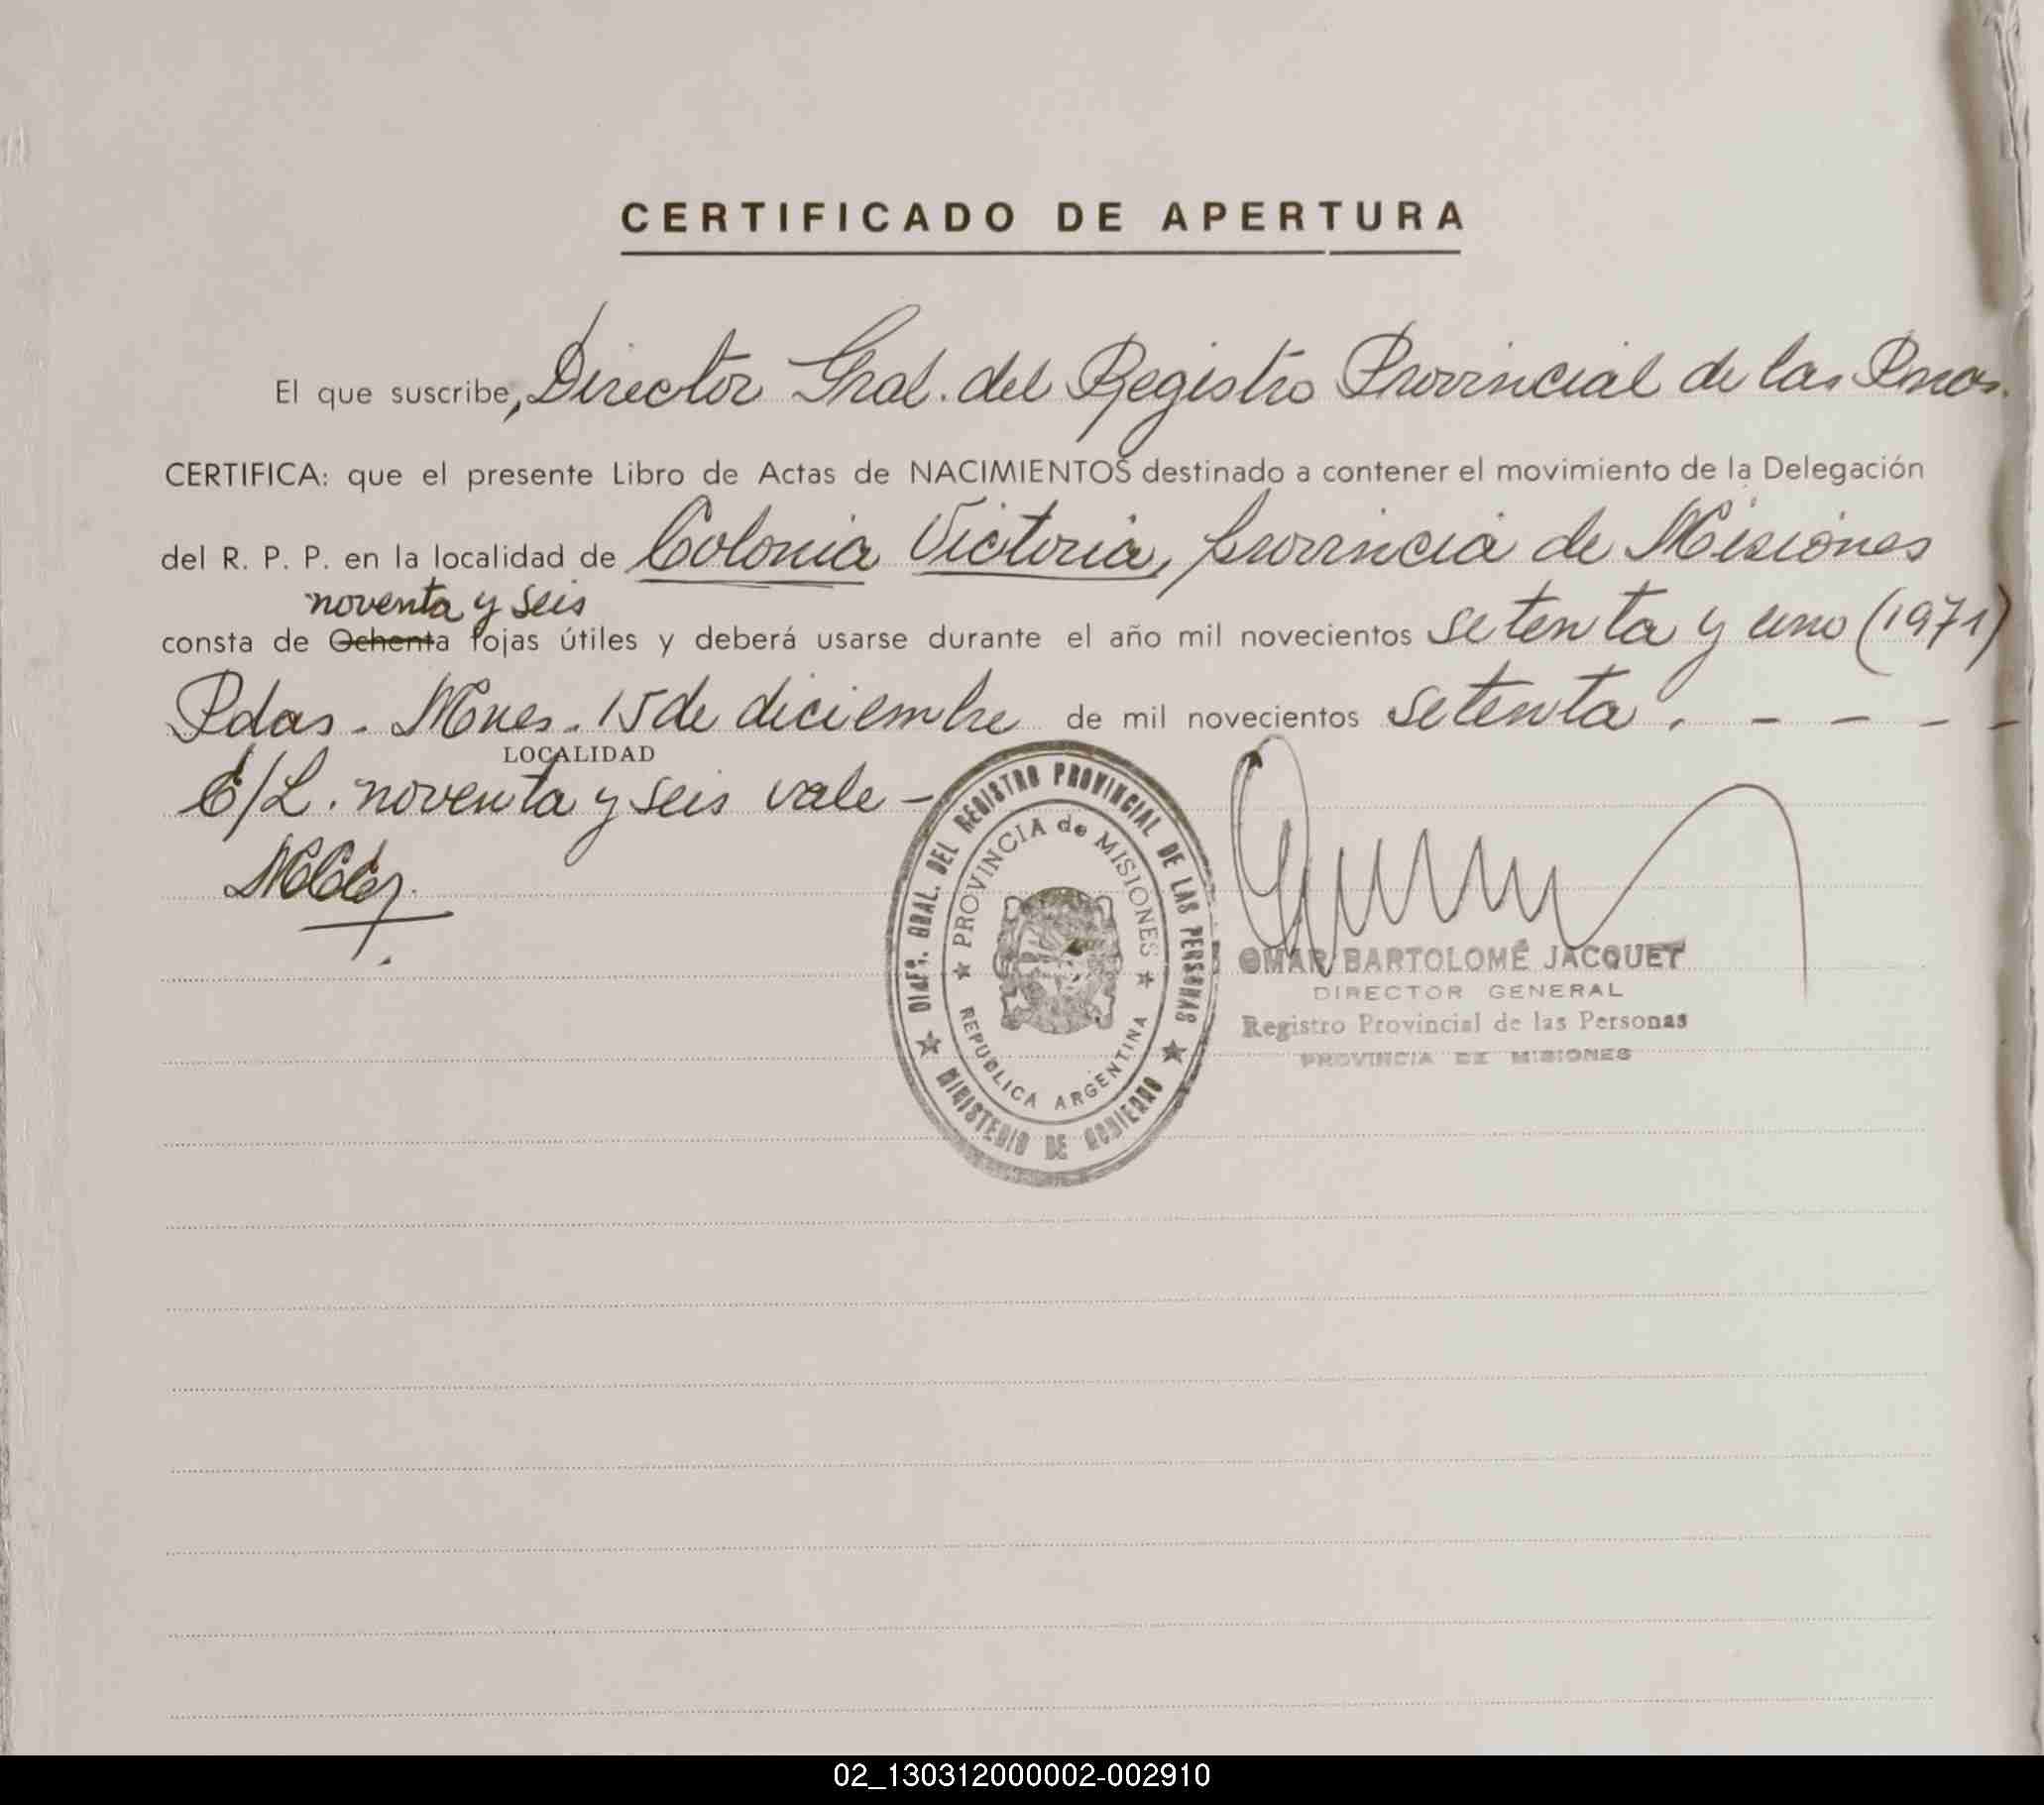 CERTIFICADO DE APERTURA
El que suscribe, Director Gral. del Registro Provincial de las Prnas.
CERTIFICA: que el presente Libro de Actas de NACIMIENTOS destinado a contener el movimiento de la Delegación
del R. P. P. en la localidad de Colonia Victoria, provincia de Misiones
noventa y seis
consta de Ochenta fojas útiles y deberá usarse durante el año mil novecientos setenta y uno (1971)
Pdas. Mnes. 15 de diciembre de mil novecientos setenta. - - - -
LOCALIDAD
E/L. noventa y seis vale -
DIREC. GRAL. DEL REGISTRO PROVINCIAL DE LAS PERSONAS
★ MINISTERIO DE GOBIERNO ★
★ PROVINCIA de MISIONES ★
REPUBLICA ARGENTINA
OMAR BARTOLOMÉ JACQUET
DIRECTOR GENERAL
Registro Provincial de las Personas
PROVINCIA DE MISIONES
02_130312000002-002910